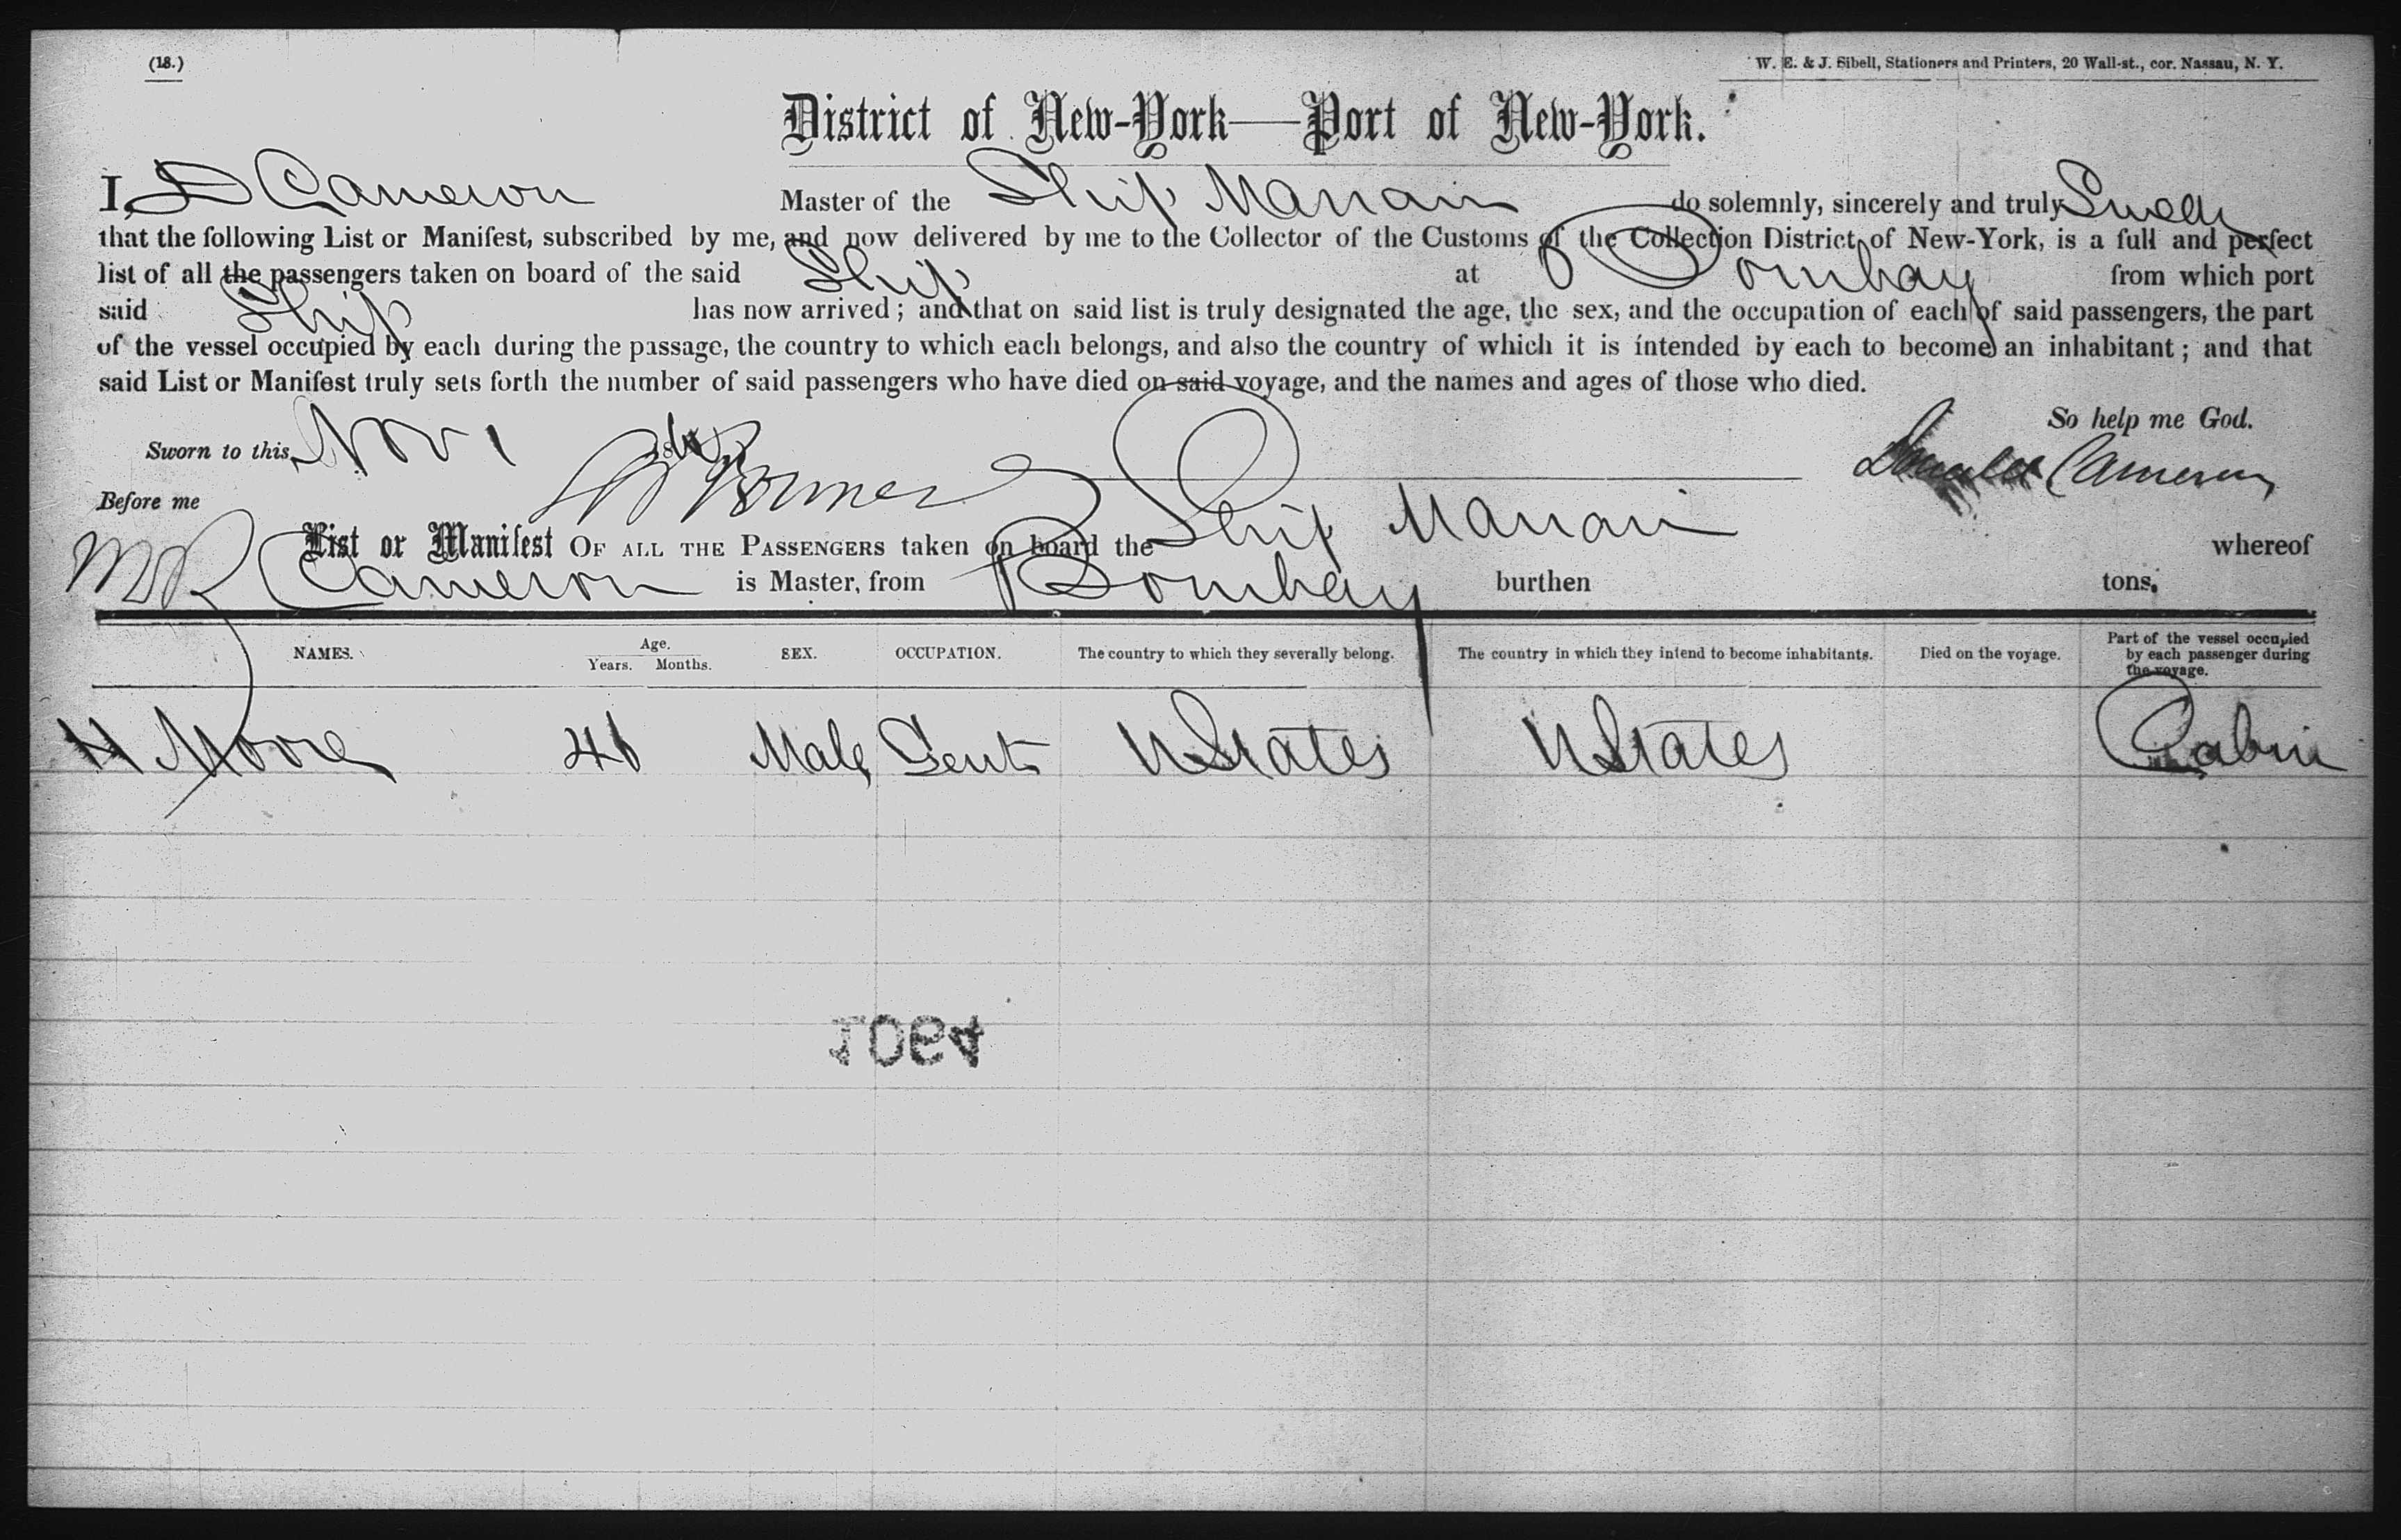 (18.)
W. E. & J. Sibell, Stationers and Printers, 20 Wall-st., cor. Nassau, N. Y.
District of New-York—Port of New-York.
I, D Cameron Master of the Ship do solemnly, sincerely and truly Swear
that the following List or Manifest, subscribed by me, and now delivered by me to the Collector of the Customs of the Collection District of New-York, is a full and perfect
list of all the passengers taken on board of the said Ship at Bombay from which port
said Ship has now arrived; and that on said list is truly designated the age, the sex, and the occupation of each of said passengers, the part
of the vessel occupied by each during the passage, the country to which each belongs, and also the country of which it is intended by each to become an inhabitant; and that
said List or Manifest truly sets forth the number of said passengers who have died on said voyage, and the names and ages of those who died.
So help me God.
Sworn to this Nov 1 Cameron
Before me
List or Manifest OF ALL THE PASSENGERS taken on board the Ship whereof
Cameron is Master, from Bombay burthen tons.
NAMES. Age. Years. Months. SEX. OCCUPATION. The country to which they severally belong. The country in which they intend to become inhabitants. Died on the voyage. Part of the vessel occupied by each passenger during the voyage.
H Moore Male Gent UStates UStates Cabin